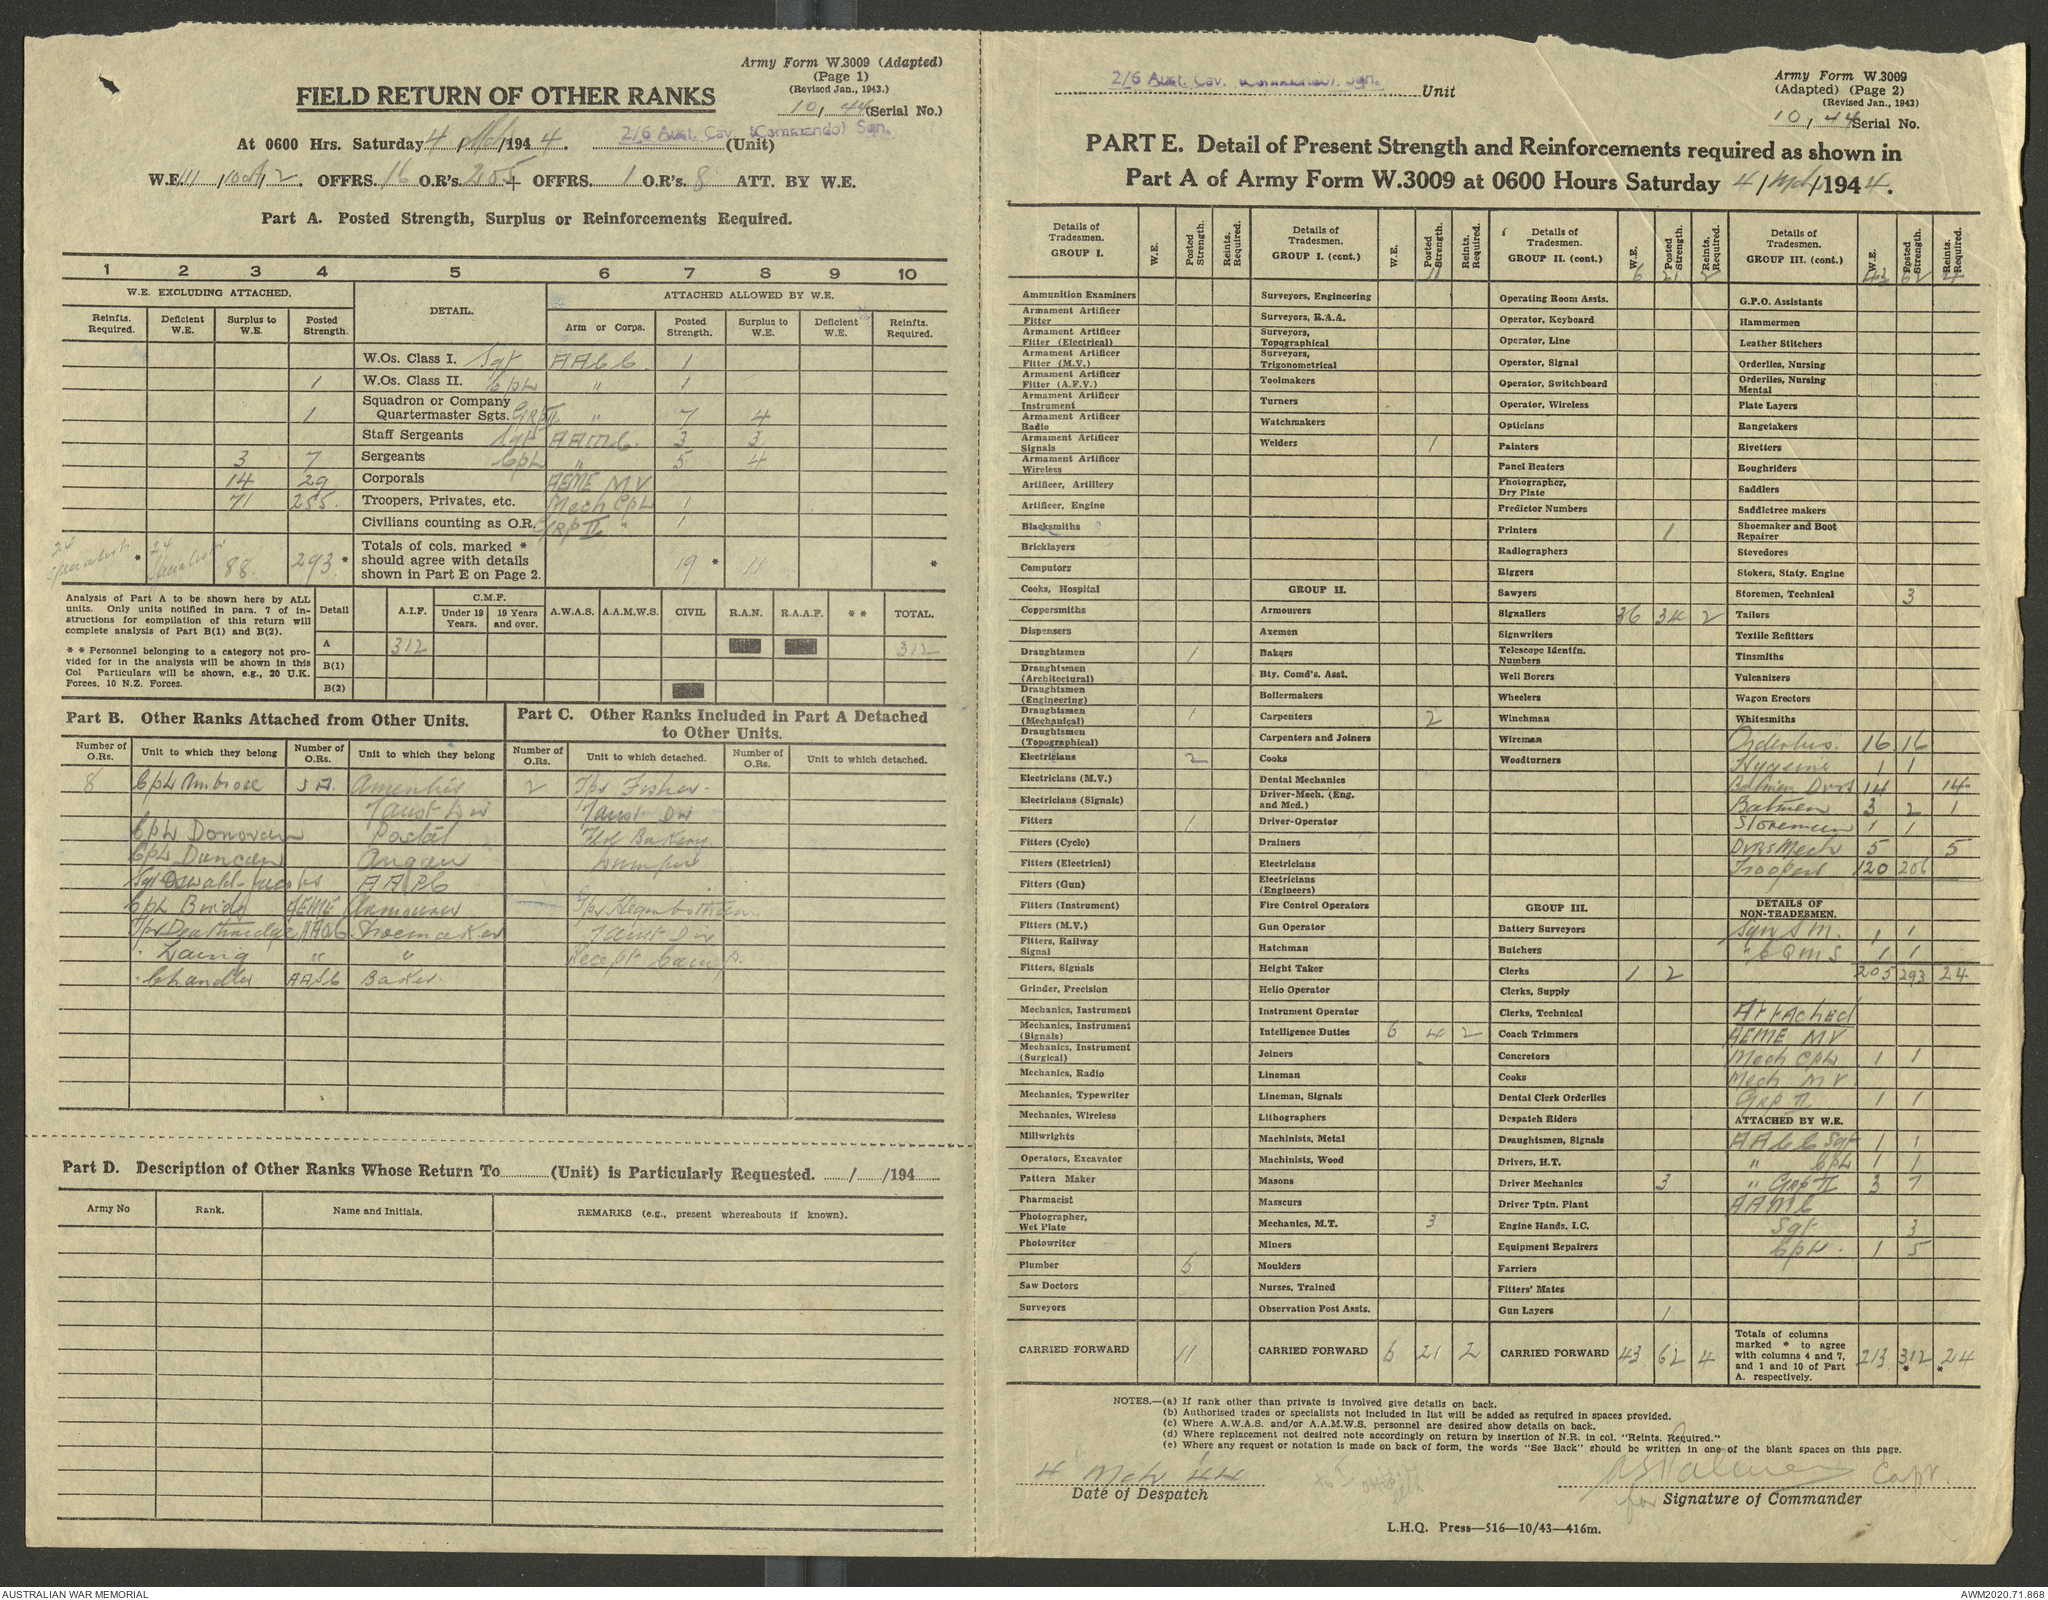 Army Form W.3009 (Adapted)
(Page 1)
(Revised Jan., 1943.)
10, 44 (Serial No.)
FIELD RETURN OF OTHER RANKS
At 0600 Hrs. Saturday 4 / Mch / 1944. 2/6 Aust. Cav. (Commando) Sqn. (Unit)
W.E. III, 10A, 2. OFFRS. 16 O.R's. 205 + OFFRS. 1 O.R's. 8 ATT. BY W.E.
Part A. Posted Strength, Surplus or Reinforcements Required.
1 2 3 4 5 6 7 8 9 10
W.E. EXCLUDING ATTACHED. DETAIL. ATTACHED ALLOWED BY W.E.
Reinfts. Required. Deficient W.E. Surplus to W.E. Posted Strength. Arm or Corps. Posted Strength. Surplus to W.E. Deficient W.E. Reinfts. Required.
W.Os. Class I. Sgt AACC. 1
1 W.Os. Class II. Cpl " 1
1 Squadron or Company Quartermaster Sgts. GRP II " 7 4
Staff Sergeants Sgt AAMC. 3 3
3 7 Sergeants Cpl " 5 4
14 29 Corporals AEME MV
71 255. Troopers, Privates, etc. Mech Cpl 1
Civilians counting as O.R. GRP II " 1
24 Specialists * 24 Specialists 88. 293 * Totals of cols. marked * should agree with details shown in Part E on Page 2. 19 * 11 *
Analysis of Part A to be shown here by ALL units. Only units notified in para. 7 of instructions for compilation of this return will complete analysis of Part B(1) and B(2).
* * Personnel belonging to a category not provided for in the analysis will be shown in this Col Particulars will be shown, e.g., 20 U.K. Forces, 10 N.Z. Forces.
Detail A.I.F. C.M.F. Under 19 Years. 19 Years and over. A.W.A.S. A.A.M.W.S. CIVIL R.A.N. R.A.A.F. * * TOTAL.
A 312 312
B(1)
B(2)
Part B. Other Ranks Attached from Other Units.
Number of O.Rs. Unit to which they belong Number of O.Rs. Unit to which they belong
8 Cpl Ambrose SA. Amenities
7 Aust Div
Cpl Donovan Postal
Cpl Duncan Angau
Sgt Oswald-Jacobs AAPC
Cpl Bridg AEME Armourer
Tpr Deuthridge AAOC Shoemaker
" Laing " "
" Chandler AASC Baker.
Part C. Other Ranks Included in Part A Detached to Other Units.
Number of O.Rs. Unit to which detached. Number of O.Rs. Unit to which detached.
2 Tpr Fisher.
7 Aust Div
Fld Bakery
Dumpu
Tpr Higinbotham
7 Aust Div
Recept Camp.
Part D. Description of Other Ranks Whose Return To (Unit) is Particularly Requested. / /194
Army No Rank. Name and Initials. REMARKS (e.g., present whereabouts if known).
2/6 Aust. Cav. (Commando). Sqn. Unit
Army Form W.3009
(Adapted) (Page 2)
(Revised Jan., 1943)
10, 44 Serial No.
PART E. Detail of Present Strength and Reinforcements required as shown in
Part A of Army Form W.3009 at 0600 Hours Saturday 4 / Mch / 1944.
Details of Tradesmen. GROUP I. W.E. Posted Strength. Reints. Required.
Ammunition Examiners
Armament Artificer Fitter
Armament Artificer Fitter (Electrical)
Armament Artificer Fitter (M.V.)
Armament Artificer Fitter (A.F.V.)
Armament Artificer Instrument
Armament Artificer Radio
Armament Artificer Signals
Armament Artificer Wireless
Artificer, Artillery
Artificer, Engine
Blacksmiths
Bricklayers
Computors
Cooks, Hospital
Coppersmiths
Dispensers
Draughtsmen 1
Draughtsmen (Architectural)
Draughtsmen (Engineering)
Draughtsmen (Mechanical) 1
Draughtsmen (Topographical)
Electricians 2
Electricians (M.V.)
Electricians (Signals)
Fitters 1
Fitters (Cycle)
Fitters (Electrical)
Fitters (Gun)
Fitters (Instrument)
Fitters (M.V.)
Fitters, Railway Signal
Fitters, Signals
Grinder, Precision
Mechanics, Instrument
Mechanics, Instrument (Signals)
Mechanics, Instrument (Surgical)
Mechanics, Radio
Mechanics, Typewriter
Mechanics, Wireless
Millwrights
Operators, Excavator
Pattern Maker
Pharmacist
Photographer, Wet Plate
Photowriter
Plumber 6
Saw Doctors
Surveyors
CARRIED FORWARD 11
Details of Tradesmen. GROUP I. (cont.) W.E. Posted Strength. Reints. Required.
11
Surveyors, Engineering
Surveyors, R.A.A.
Surveyors, Topographical
Surveyors, Trigonometrical
Toolmakers
Turners
Watchmakers
Welders 1
GROUP II.
Armourers
Axemen
Bakers
Bty. Comd's. Asst.
Boilermakers
Carpenters 2
Carpenters and Joiners
Cooks
Dental Mechanics
Driver-Mech. (Eng. and Med.)
Driver-Operator
Drainers
Electricians
Electricians (Engineers)
Fire Control Operators
Gun Operator
Hatchman
Height Taker
Helio Operator
Instrument Operator
Intelligence Duties 6 4 2
Joiners
Lineman
Lineman, Signals
Lithographers
Machinists, Metal
Machinists, Wood
Masons
Masseurs
Mechanics, M.T. 3
Miners
Moulders
Nurses, Trained
Observation Post Assts.
CARRIED FORWARD 6 21 2
Details of Tradesmen. GROUP II. (cont.) W.E. Posted Strength. Reints. Required.
6 21 2
Operating Room Assts.
Operator, Keyboard
Operator, Line
Operator, Signal
Operator, Switchboard
Operator, Wireless
Opticians
Painters
Panel Beaters
Photographer, Dry Plate
Predictor Numbers
Printers 1
Radiographers
Riggers
Sawyers
Signallers 36 34 2
Signwriters
Telescope Identfn. Numbers
Well Borers
Wheelers
Winchman
Wireman
Woodturners
GROUP III.
Battery Surveyors
Butchers
Clerks 1 2
Clerks, Supply
Clerks, Technical
Coach Trimmers
Concretors
Cooks
Dental Clerk Orderlies
Despatch Riders
Draughtsmen, Signals
Drivers, H.T.
Driver Mechanics 3
Driver Tptn. Plant
Engine Hands, I.C.
Equipment Repairers
Farriers
Fitters' Mates
Gun Layers 1
CARRIED FORWARD 43 62 4
Details of Tradesmen. GROUP III. (cont.) W.E. Posted Strength. Reints. Required.
43 62 4
G.P.O. Assistants
Hammermen
Leather Stitchers
Orderlies, Nursing
Orderlies, Nursing Mental
Plate Layers
Rangetakers
Rivetters
Roughriders
Saddlers
Saddletree makers
Shoemaker and Boot Repairer
Stevedores
Stokers, Staty. Engine
Storemen, Technical 3
Tailors
Textile Refitters
Tinsmiths
Vulcanizers
Wagon Erectors
Whitesmiths
Orderlies. 16 16
Hygeine 1 1
Batmen Dvrs 14 14
Batmen 3 2 1
Storemen 1 1
Dvrs Mech 5 5
Troopers 120 206
DETAILS OF NON-TRADESMEN.
Sqn S M. 1 1
" S Q M S 1 1
205 293 24
Attached
AEME MV
Mech Cpl 1 1
Mech MV
Grp II 1 1
ATTACHED BY W.E.
AACC Sgt 1 1
" Cpl 1 1
" Grp II 3 7
AAMC
Sgt 3
Cpl. 1 5
Totals of columns marked * to agree with columns 4 and 7, and 1 and 10 of Part A. respectively. 213 312 * 24 *
NOTES.—(a) If rank other than private is involved give details on back.
(b) Authorised trades or specialists not included in list will be added as required in spaces provided.
(c) Where A.W.A.S. and/or A.A.M.W.S. personnel are desired show details on back.
(d) Where replacement not desired note accordingly on return by insertion of N.R. in col. "Reints. Required."
(e) Where any request or notation is made on back of form, the words "See Back" should be written in one of the blank spaces on this page.
4 Mch 44
Date of Despatch
Capt.
for Signature of Commander
L.H.Q. Press—516—10/43—416m.
AUSTRALIAN WAR MEMORIAL
AWM2020.71.868